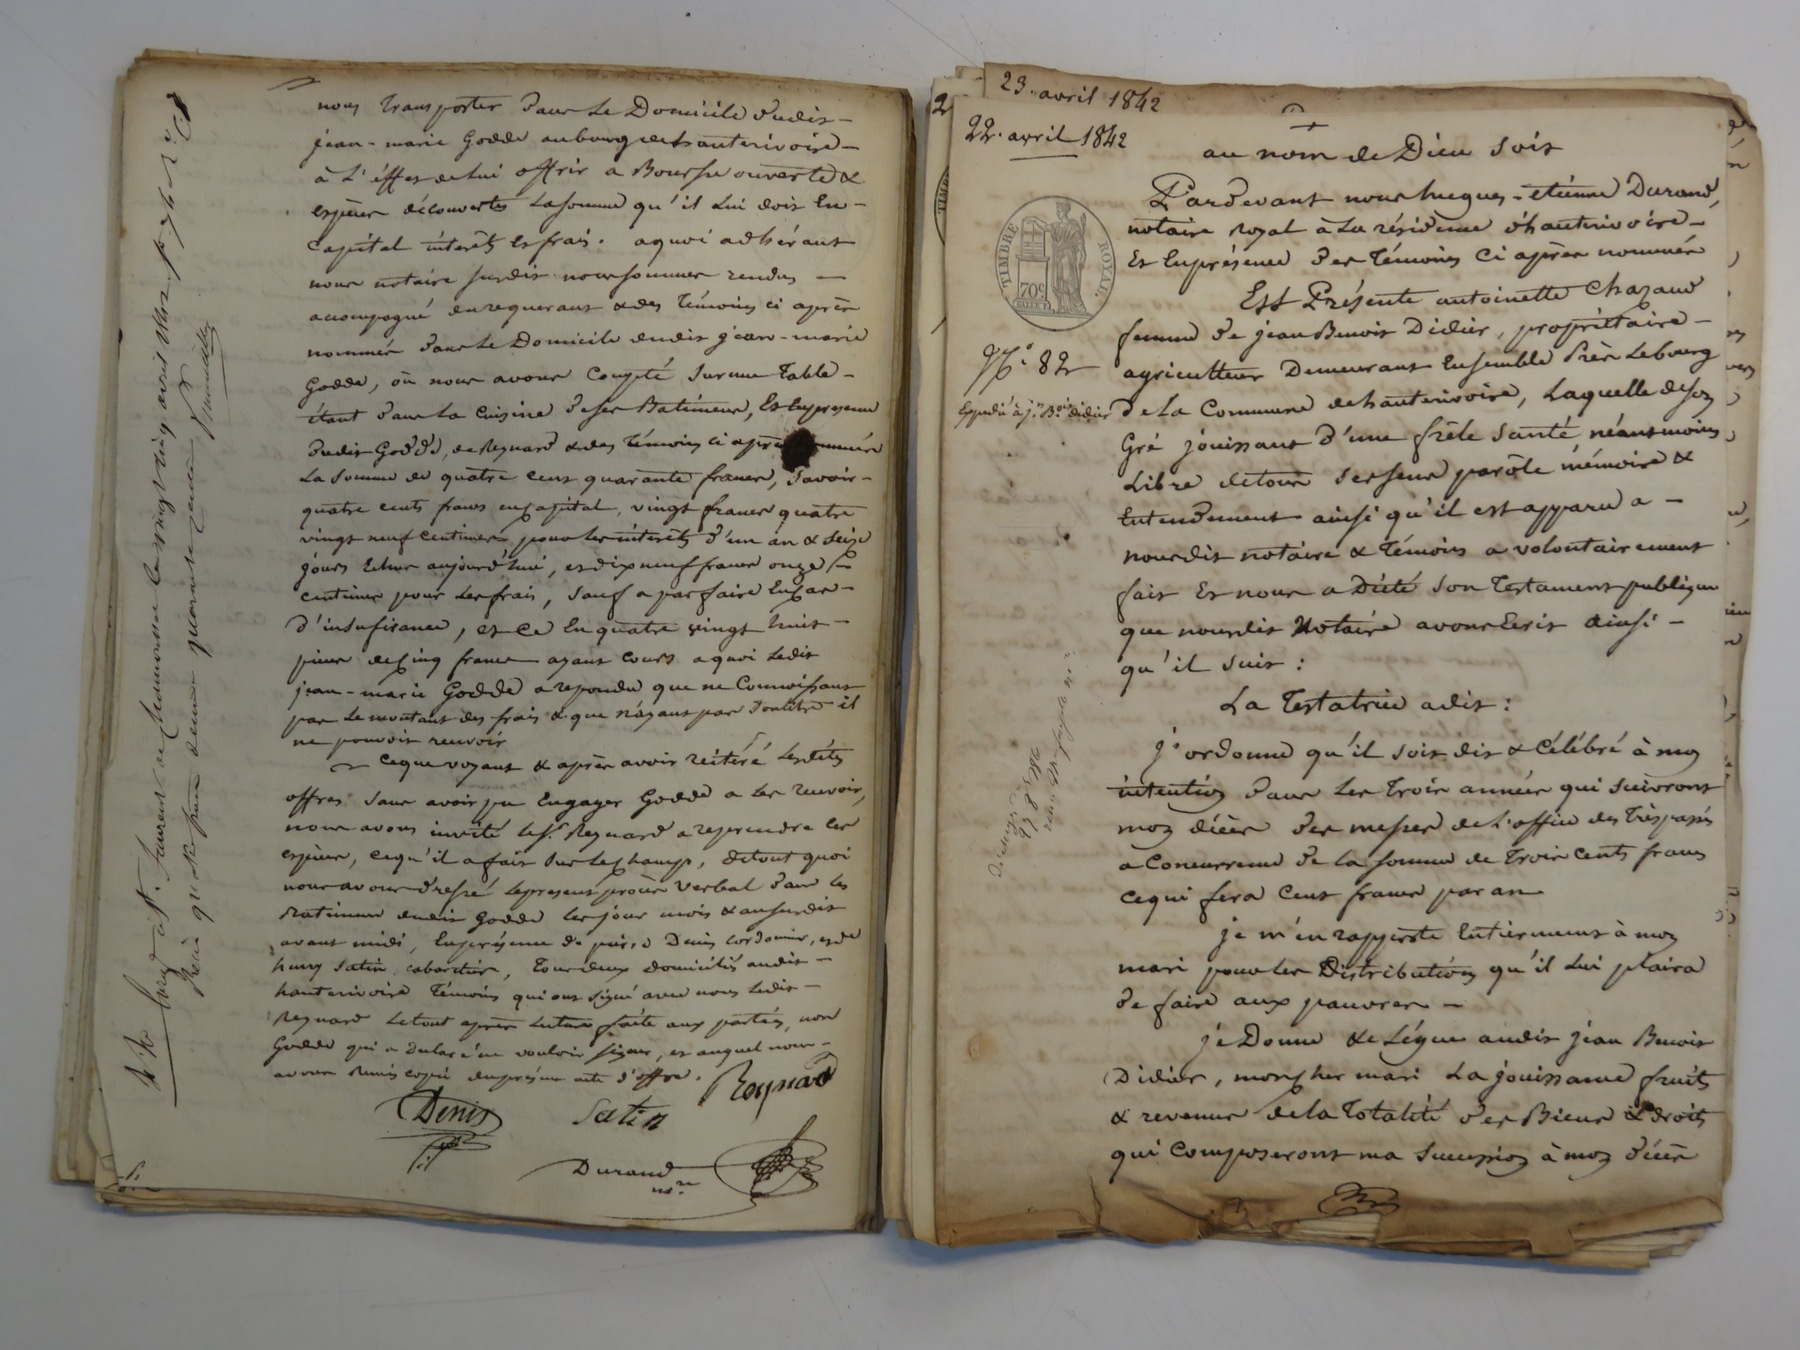 nous transporter dans le Domicile dudit
jean-marie Godde au bourg de hauterivoire
à l'éffet de lui offrir a Bourse ouverte &
espèces découvertes la somme qu'il lui doit en
Capital intérêts et frais. aquoi adhérant
nous notaire susdit nous sommes rendus
accompagné du requerant & des témoins ci après
nommés dans le Domicile dudit jean-marie
Godde, où nous avons Compté sur une table
étant dans la Cuisine de ses Batimens, Et en presence
dudit Godde, de Reynard & des témoins ci après nommés
la somme de quatre cent quarante francs, Savoir
quatre cents francs en capital, vingt francs quatre
vingt neuf centimes pour les intérêts d'un an & seize
jours Echus aujourd'hui, et dix neuf francs onze
centimes pour les frais, sauf a parfaire En cas
d'insufisance, et ce En quatre vingt huit
pieces de cinq francs ayant cours aquoi ledit
jean-marie Godde a repondu que ne Connoissant
pas le montant des frais & que n'ayant pas son titre il
ne pouvoit recevoir
Ceque voyant & après avoir réitéré lesdites
offres sans avoir pu Engager Godde a les recevoir,
nous avons invité le Sr. Reynard a reprendre les
espèces, cequ'il a fait sur le champ, de tout quoi
nous avons dressé le present procès verbal dans les
Batimens dudit Godde les jour mois & an susdit
avant midi, En présence de pierre Denis cordonnier, et de
henry Satin cabaretier, tous deux domiciliés audit
hauterivoire témoins qui ont signé avec nous ledit
Reynard le tout après lecture faite aux parties, non
Godde qui a declaré ne vouloir signer, et auquel nous
avons remis copie du présent acte d'offre.
Reynard
Denis
Satin
Durand
nre
Enregistré à St. Laurent de Chamousset le vingt trois avril 1842
Reçu
23. avril 1842
22. avril 1842
TIMBRE ROYAL
70c
N.° 82
Expédié à jn. Bt. didier
au nom de Dieu soit
Pardevant nous hugues-etiénne Durand,
notaire royal à la résidence d'hauterivoire
Et En présence des témoins Ci après nommés
Est Présente antoinette Chazaud
femme de jean Benoit Didier, propriétaire
agriculteur Demeurant Ensemble Près le bourg
de la Commune de hauterivoire, Laquelle de son
Gré jouissant d'une frêle santé néantmoins
Libre de tous ses sens parole mémoire &
Entendement ainsi qu'il est apparu a
nousdit notaire & témoins a volontairement
fait Et nous a Dicté son Testament publique
que nousdit Notaire avons Ecrit ainsi
qu'il suit :
La Testatrice a dit :
j'ordonne qu'il soit dit & célébré à mon
intention dans les trois années qui suivront
mon décès des messes de l'office des trépassés
a Concurrence de la somme de trois cents francs
cequi fera cent francs par an
je m'en rapporte Entierement à mon
mari pour les Distributions qu'il lui plaira
de faire aux pauvres
je Donne & Légue audit jean Benoit
Didier, mon cher mari la jouissance fruits
& revenus de la totalité des Biens & droits
qui Composeront ma succession à mon décès